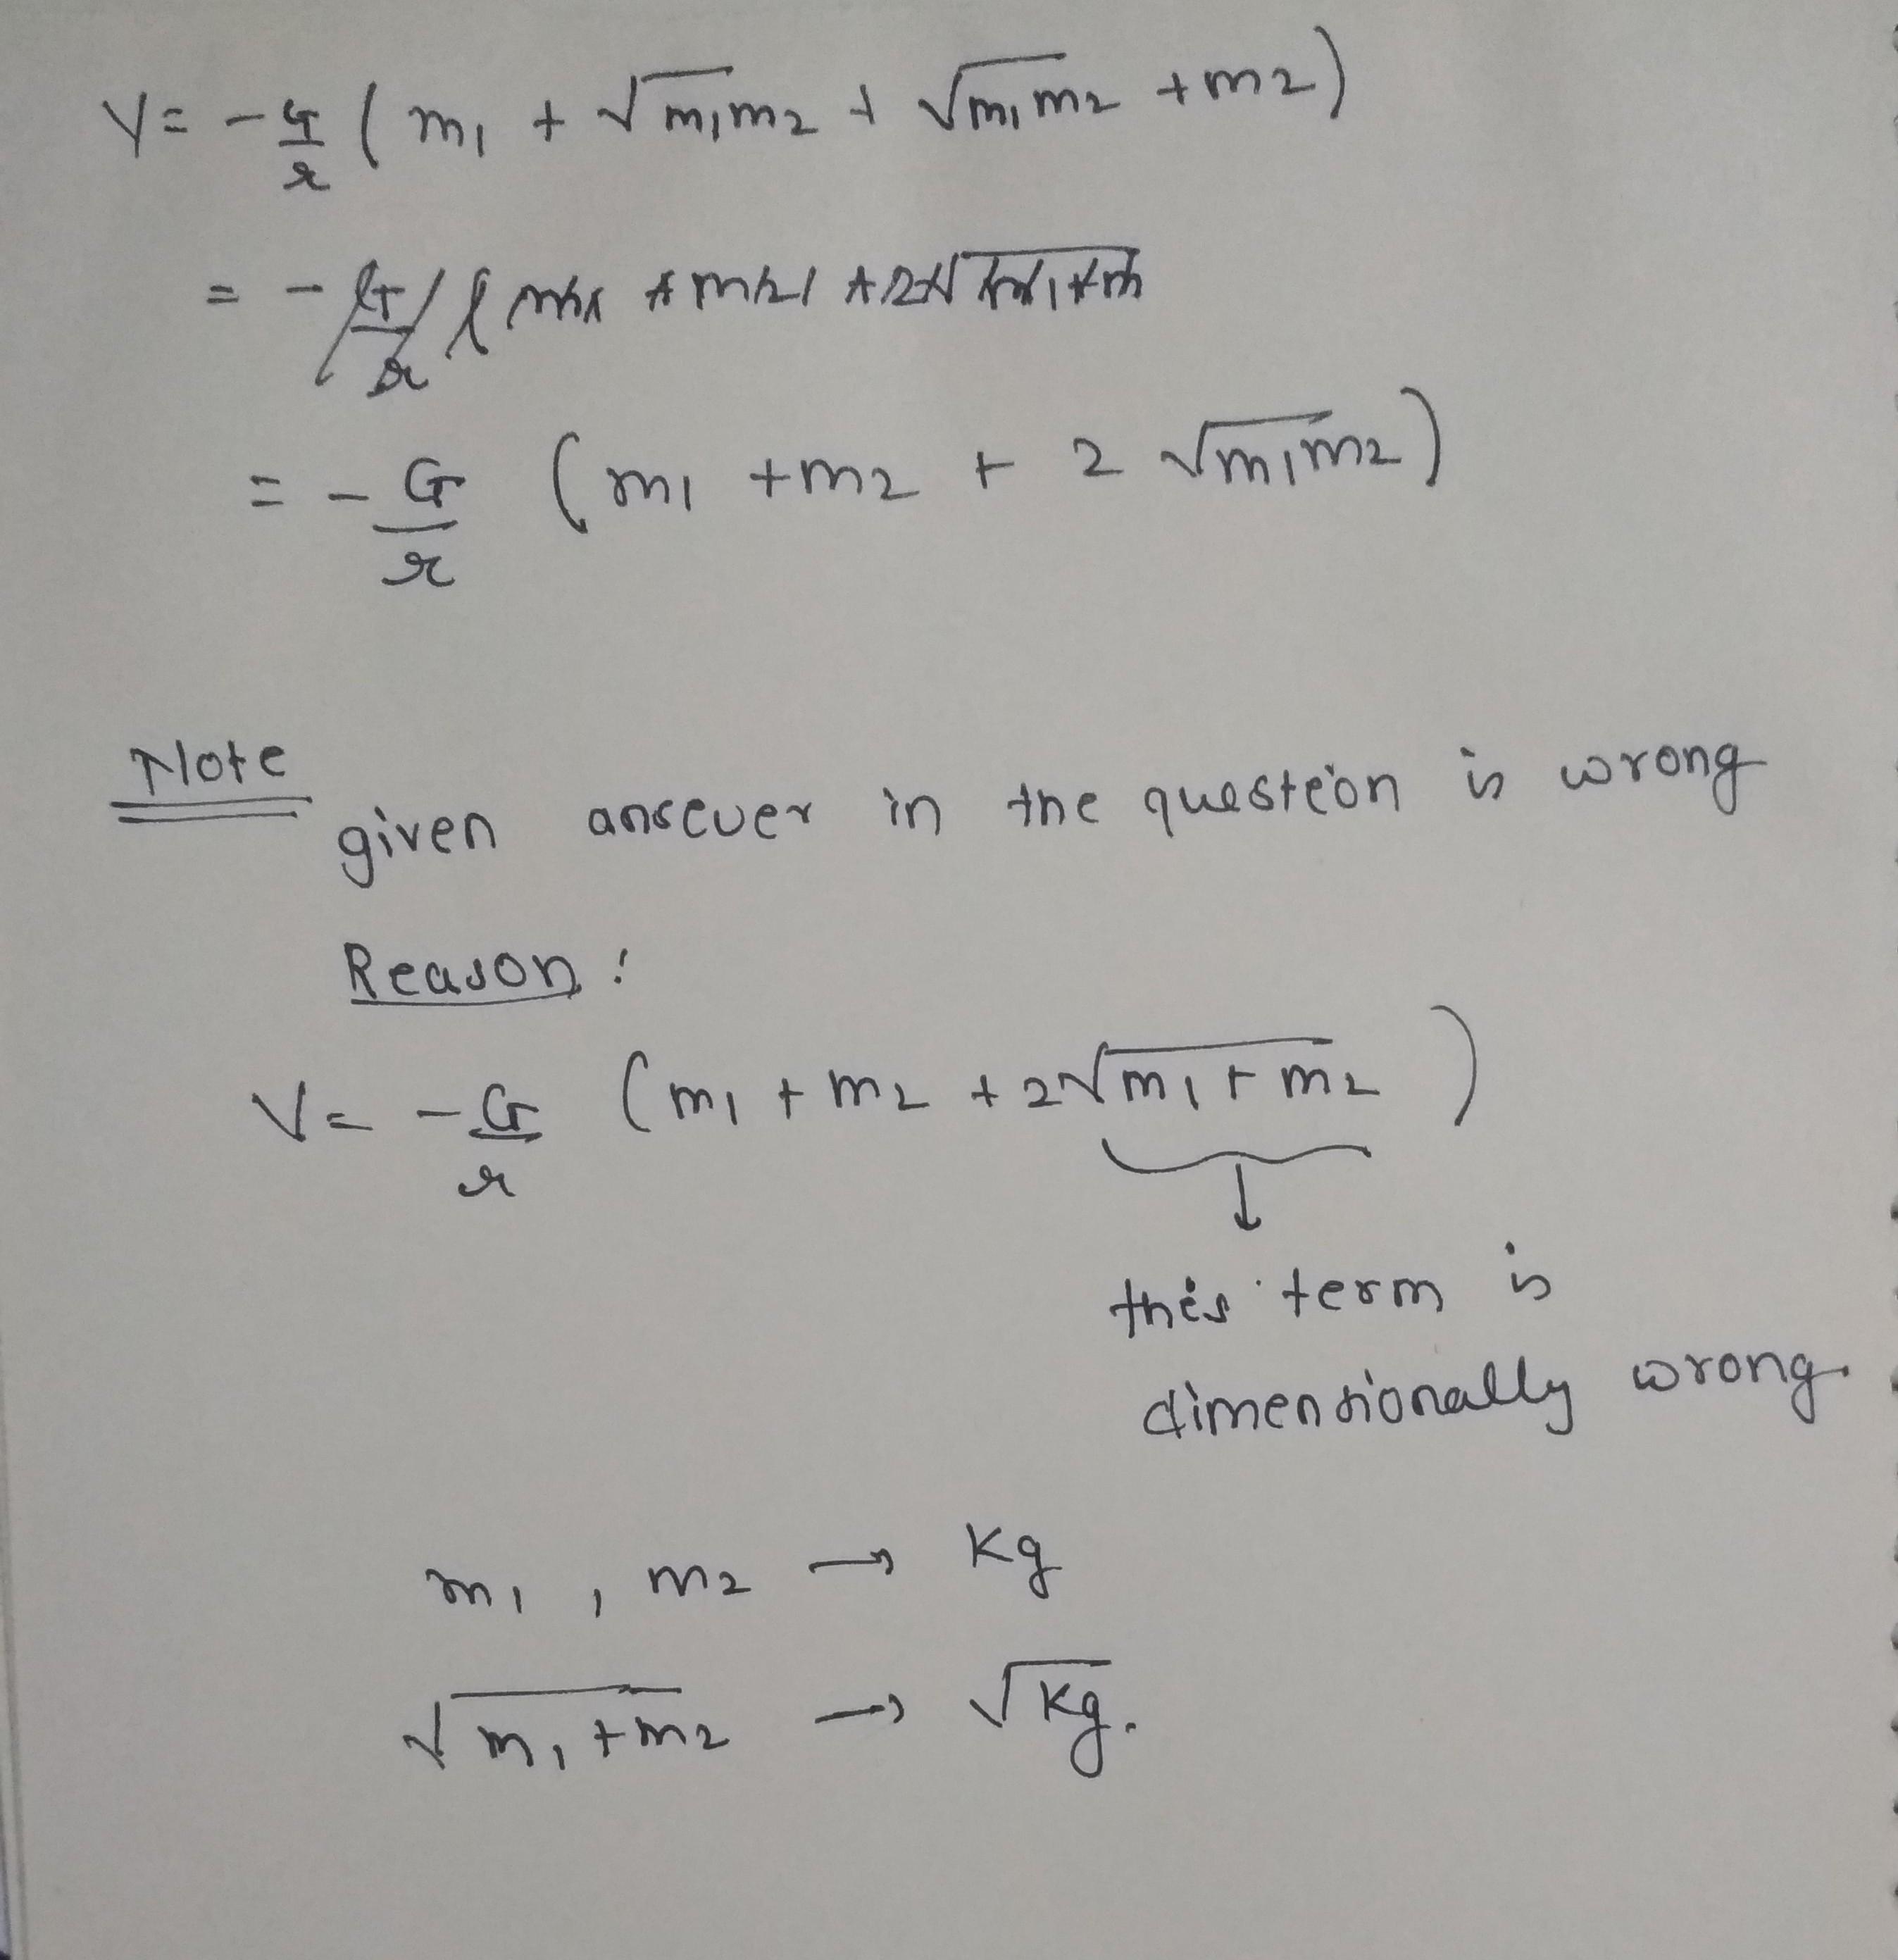 V = - G/r ( m1 + √m1m2 + √m1m2 + m2 )
= - G/r ( m1 + m2 + 2√m1+m
= - G/r ( m1 + m2 + 2 √m1m2 )
Note
given answer in the question is wrong
Reason :
V = - G/r ( m1 + m2 + 2√m1+m2 )
↓
this term is
dimensionally wrong.
m1 , m2 → Kg
√m1+m2 → √Kg.